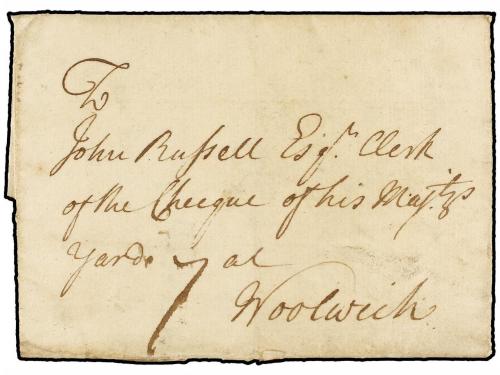 To
John Russell Esqr. Clerk
of the Cheeque of his Majtys
Yard 7 at
Woolwich